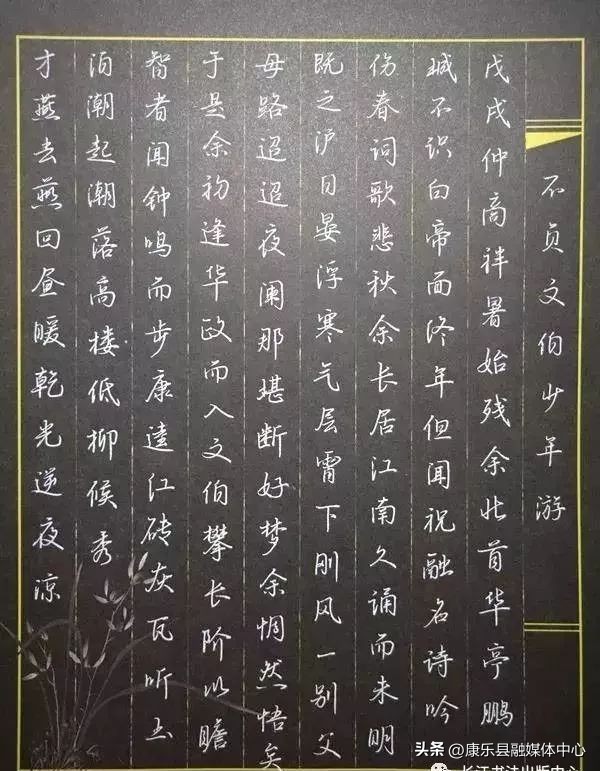 不负文伯少年游
戊戌仲商袢暑始残余北首华亭鹏
城不识白帝面终年但闻祝融名诗吟
伤春词歌悲秋余长居江南久诵而未明
既之沪日晏浮寒气层霄下刚风一别父
母路迢迢夜阑那堪断好梦余惘然悟矣
于是余初逢华政而入文伯攀长阶以瞻
智者闻钟鸣而步康逵红砖灰瓦听
泊潮起潮落高楼低柳候秀
才燕去燕回昼暖乾光逆夜凉
头条 @康乐县融媒体中心
长江书法出版中心